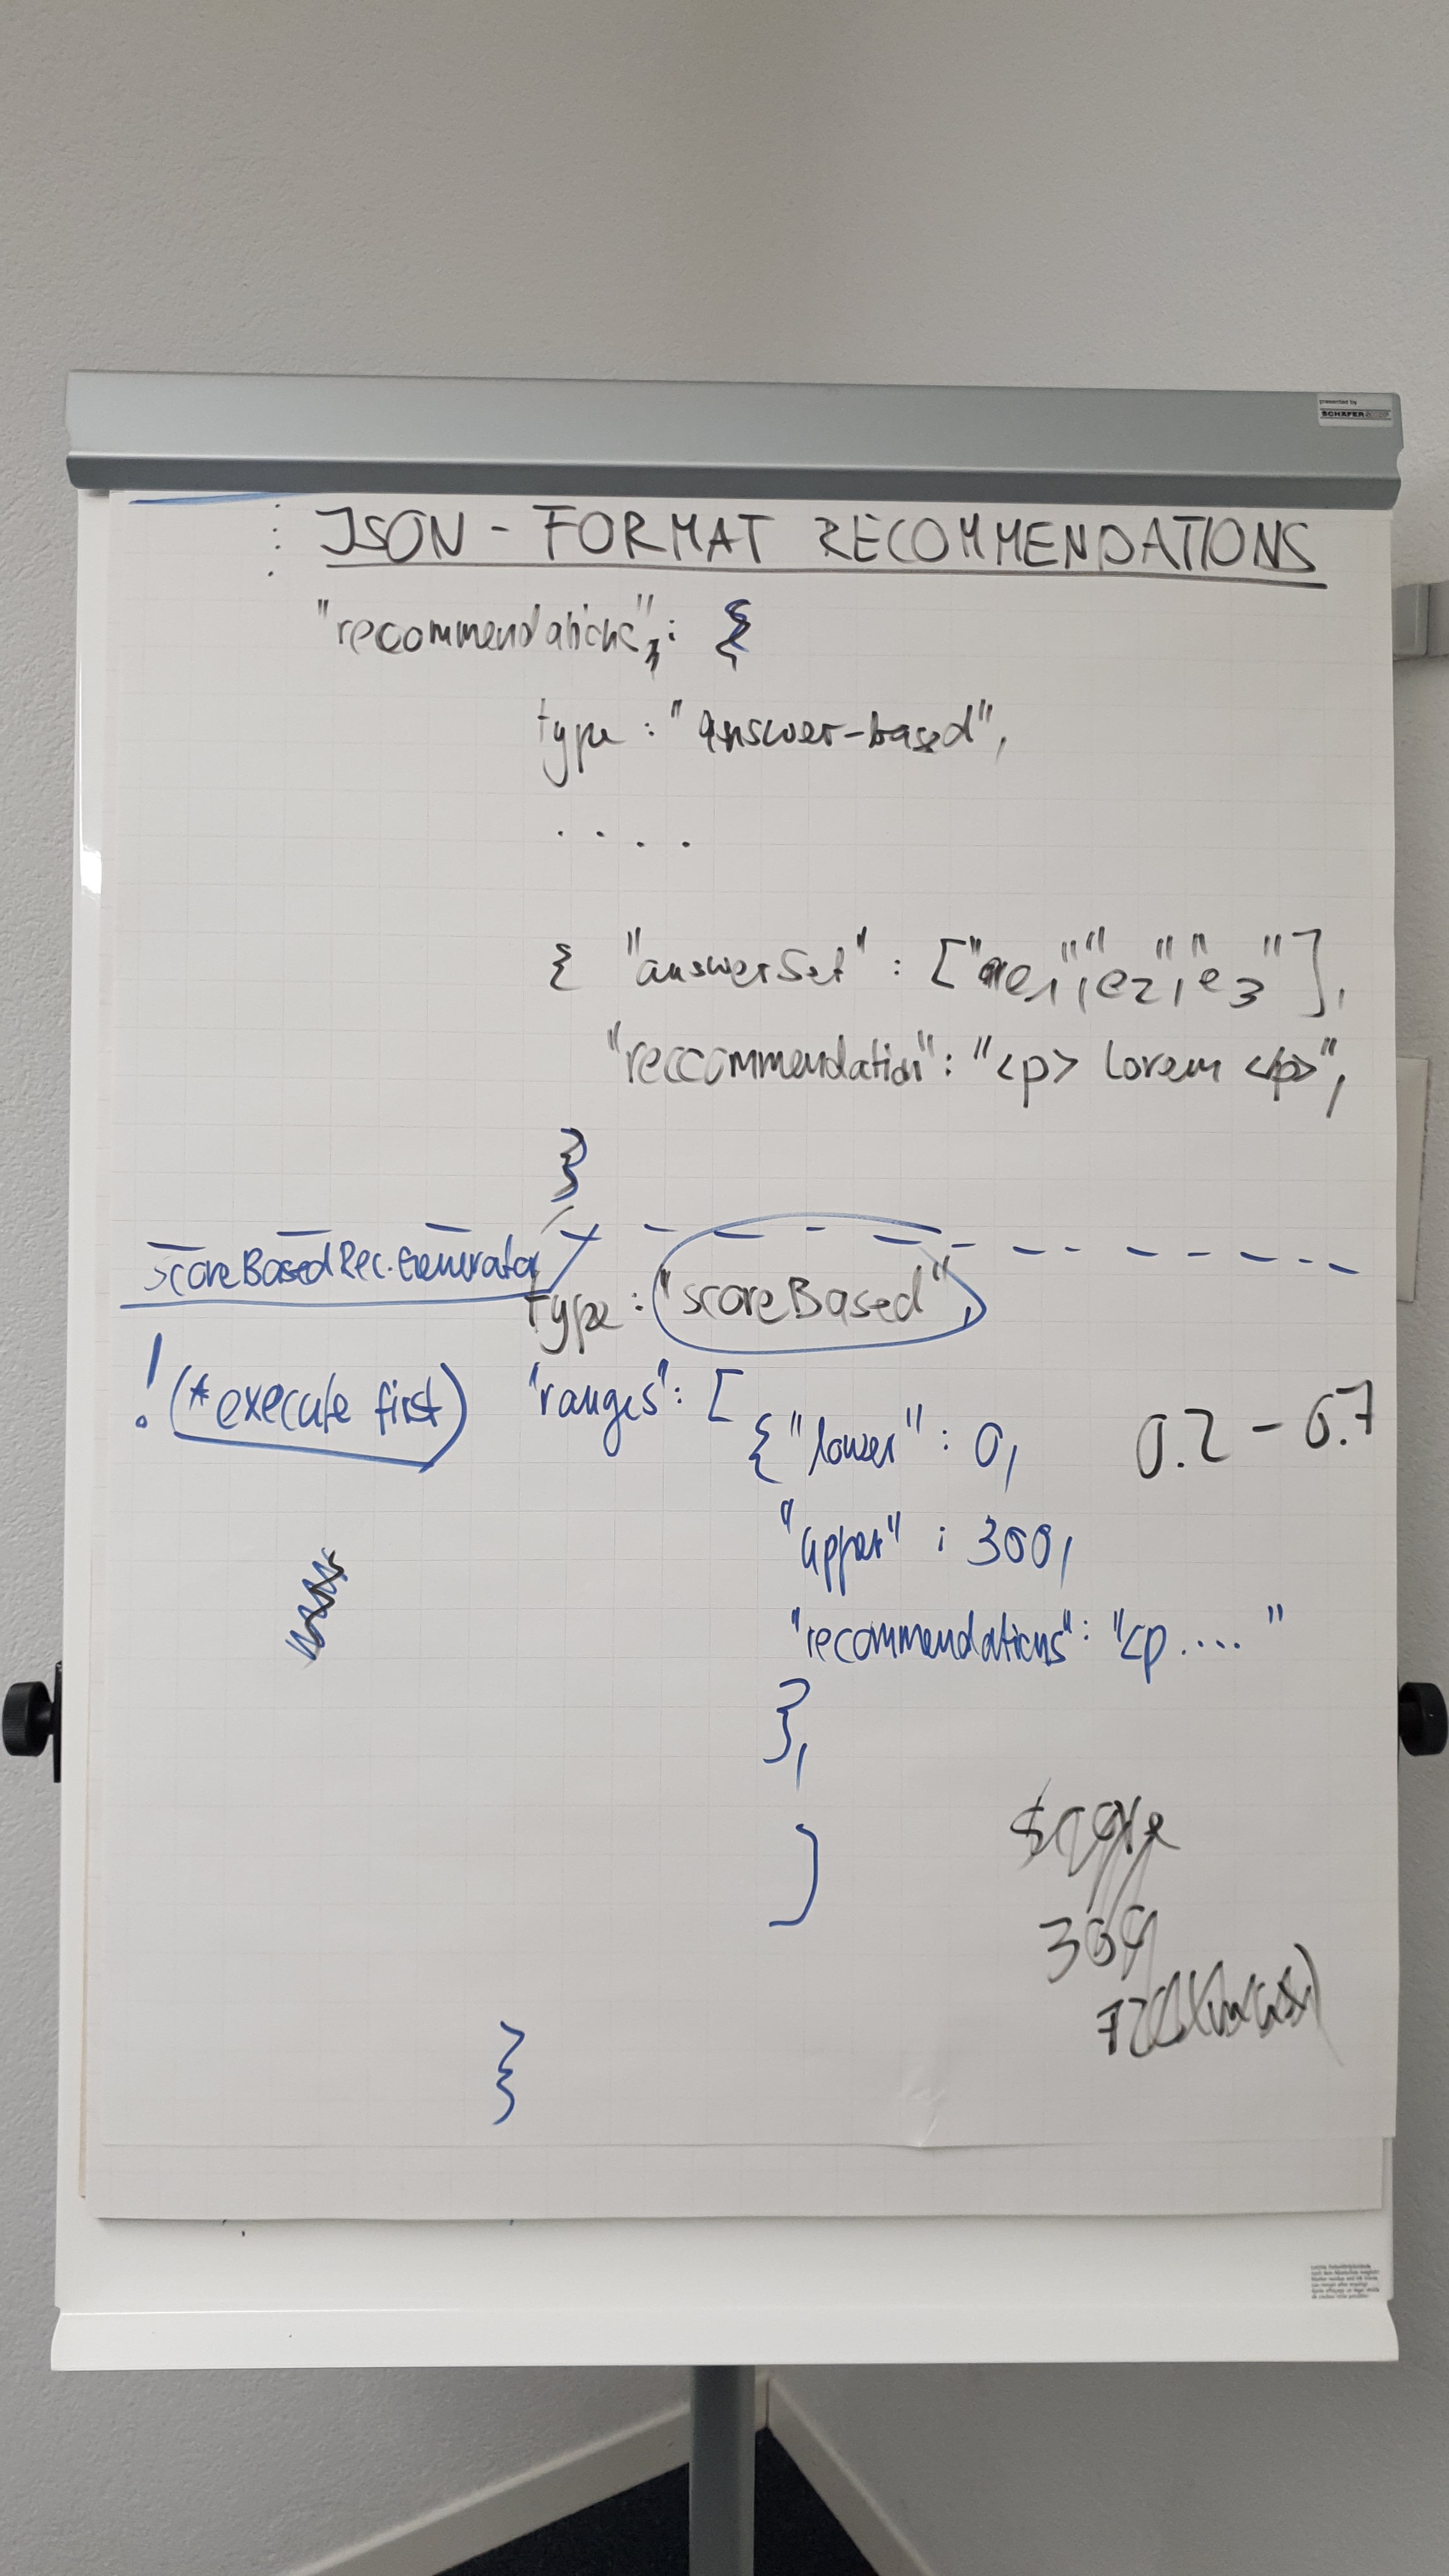 presented by
SCHÄFER
JSON - FORMAT RECOMMENDATIONS
"recommendations": {
type : "answer-based",
. . . .
{ "answerSet" : ["e1","e2","e3"],
"reccommendation": "<p> lorem </p>",
}
ScoreBasedRec.Generator
type : "scoreBased",
! (*execute first)
"ranges": [
{ "lower" : 0,
0.2 - 0.7
"upper" : 300,
"recommendations": "<p .... "
},
]
score
300
}